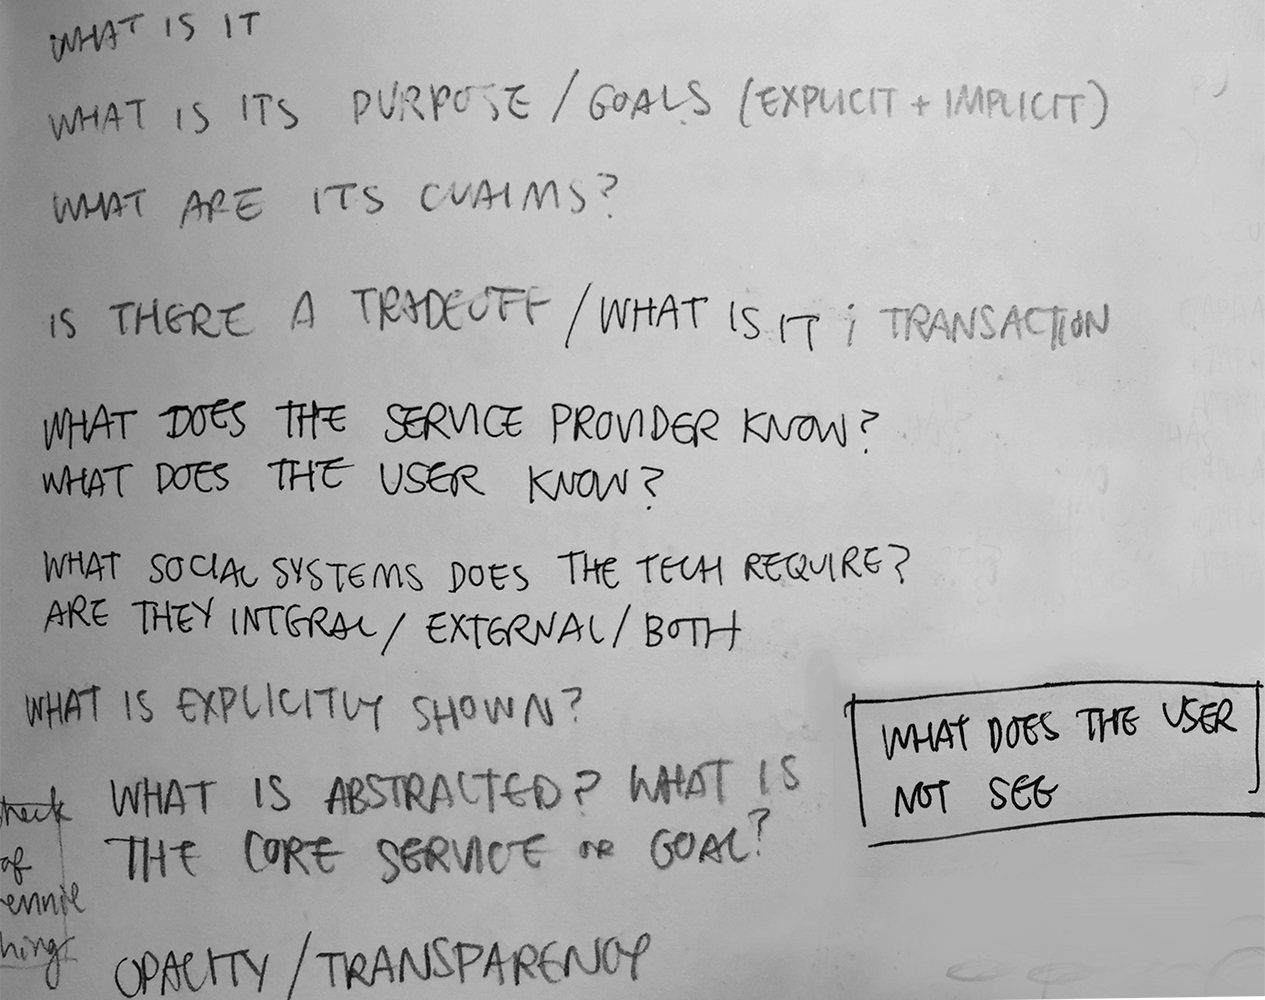 WHAT IS IT
WHAT IS ITS PURPOSE / GOALS (EXPLICIT + IMPLICIT)
WHAT ARE ITS CLAIMS?
IS THERE A TRADEOFF / WHAT IS IT ; TRANSACTION
WHAT DOES THE SERVICE PROVIDER KNOW?
WHAT DOES THE USER KNOW?
WHAT SOCIAL SYSTEMS DOES THE TECH REQUIRE?
ARE THEY INTEGRAL / EXTERNAL / BOTH
WHAT IS EXPLICITLY SHOWN?
WHAT DOES THE USER
NOT SEE
WHAT IS ABSTRACTED? WHAT IS
THE CORE SERVICE OR GOAL?
of
OPACITY / TRANSPARENCY